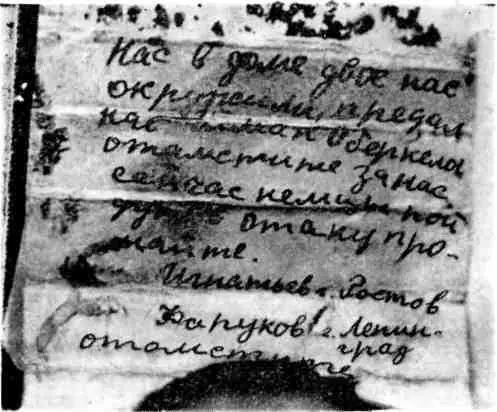 Нас в доме двое нас
окружили, предал
нас
отамстите за нас
сейчас пой
дут отаку про-
щайте.
Игнатьев г. Ростов
Фаруков г. Ленин-
град
отомстите